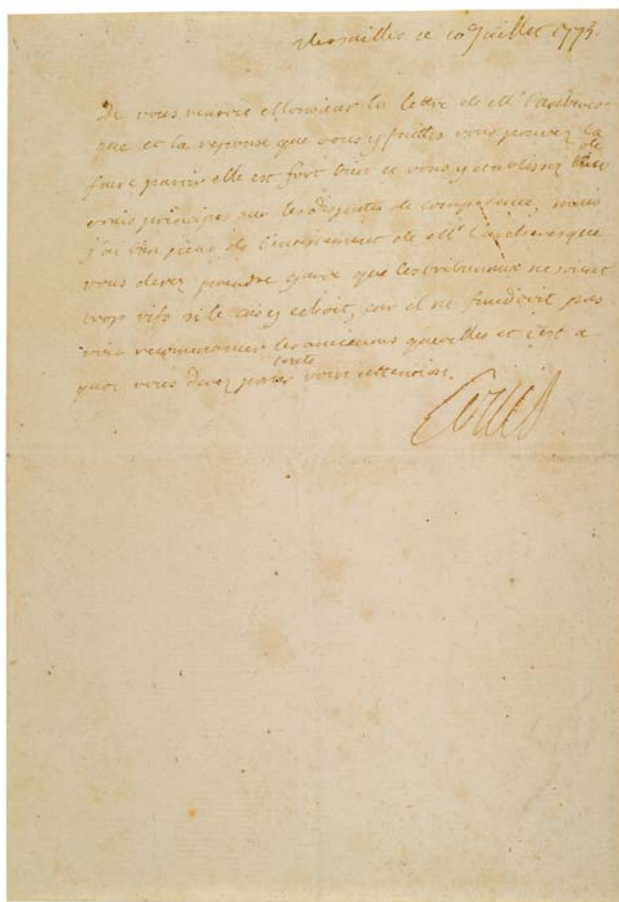 Versailles ce 10 Juillet 1773.
Je vous renvoie Monsieur la lettre de Mr. l'archeves
que et la reponse que vous y faittes vous pouvez la
faire partir elle est fort bien et vous y etablissez de
vrais principes sur les disputes de competence, mais
j'ai bien peur de l'entetement de Mr. l'archevesque
vous devez prendre garde que les tribunaux ne soient
trop vifs si le cas y echoit, car il ne faudroit pas
voir recommencer les anciennes querelles et c'est a
quoi vous devez porter toute votre attention.
Louis